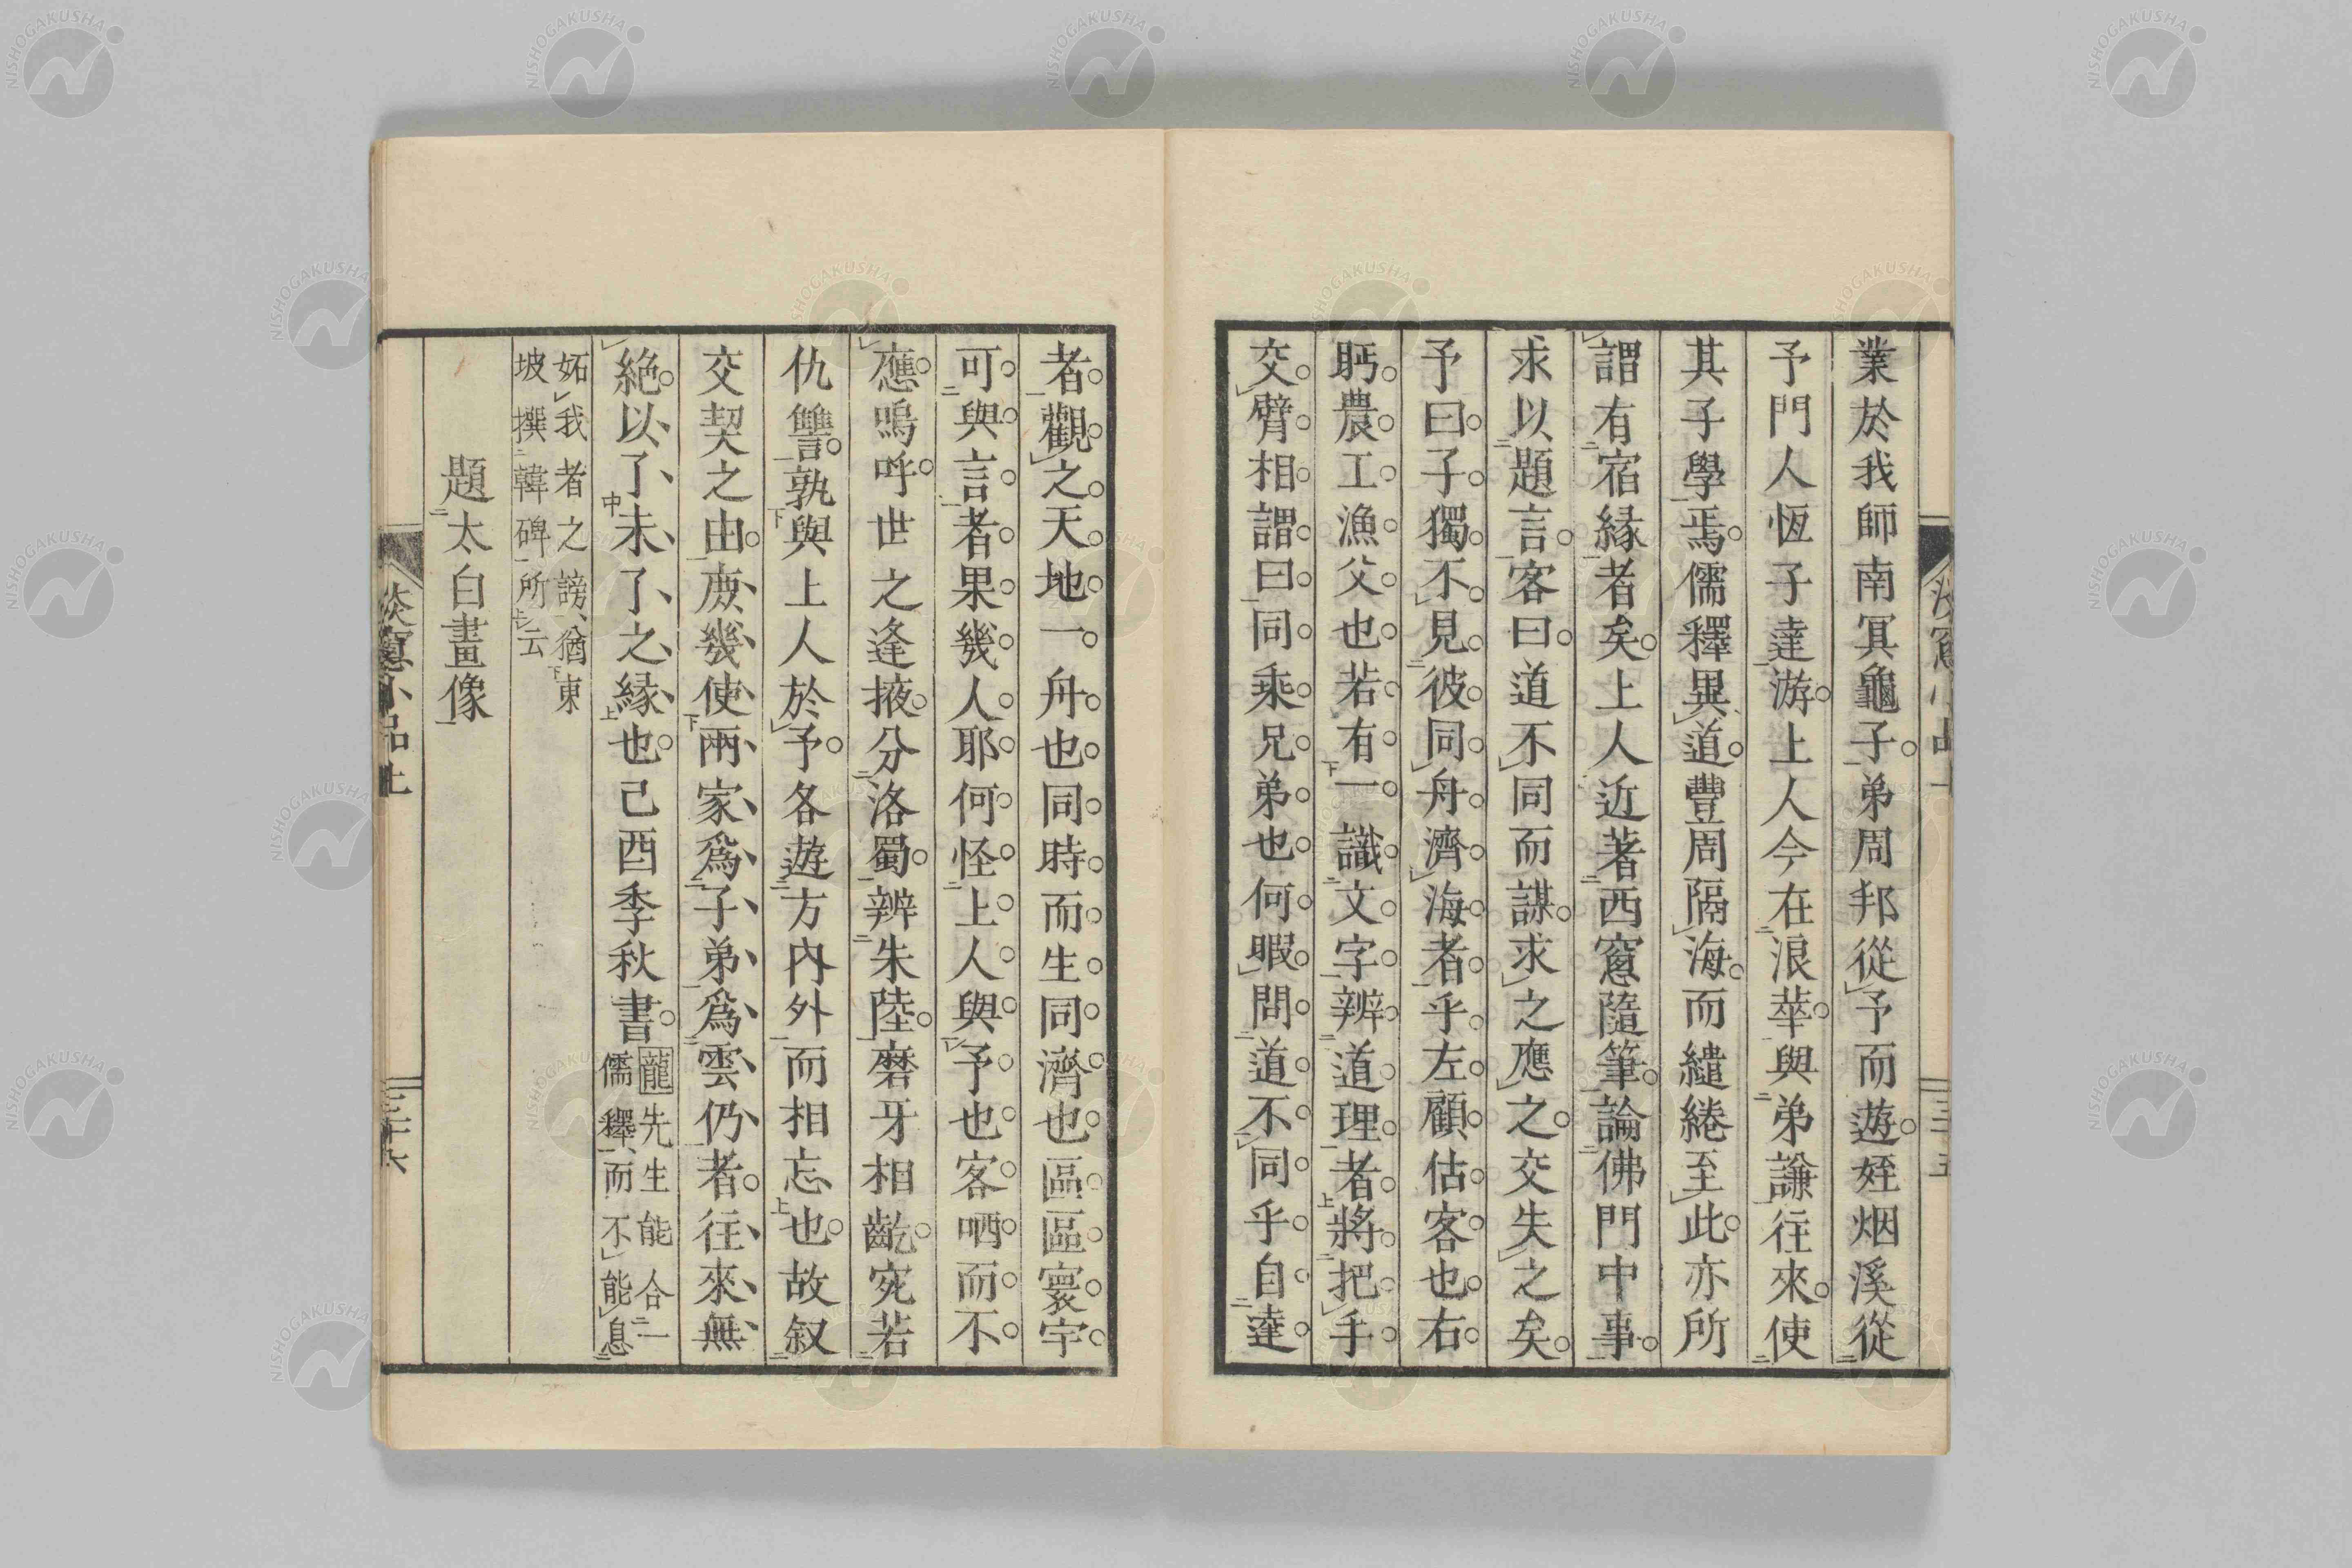 業於我師南冥龜子弟周邦從予而遊姪烟溪從
予門人恆子達游上人今在浪華與弟謙往來使
其子學焉儒釋異道豐周隔海而繾綣至此亦所
謂有宿緣者矣上人近著西窻隨筆論佛門中事
求以題言客曰道不同而謀求之應之交失之矣
予曰子獨不見彼同舟濟海者乎左顧估客也右
眄農工漁父也若有一識文字辨道理者將把手
交臂相謂曰同乘兄弟也何暇問道不同乎自達
三十五
者觀之天地一舟也同時而生同濟也區區寰宇
可與言者果幾人耶何怪上人與予也客哂而不
應嗚呼世之逢掖分洛蜀辨朱陸磨牙相齕宛若
仇讐孰與上人於予各遊方內外而相忘也故叙
交契之由庻幾使兩家爲子弟爲雲仍者往來無
絕以了未了之緣也己酉季秋書
龍先生能合一
儒釋而不能息
妬我者之謗猶東
坡撰韓碑所云
題太白畫像
淡窻小品上
三十六
NISHOGAKUSHA